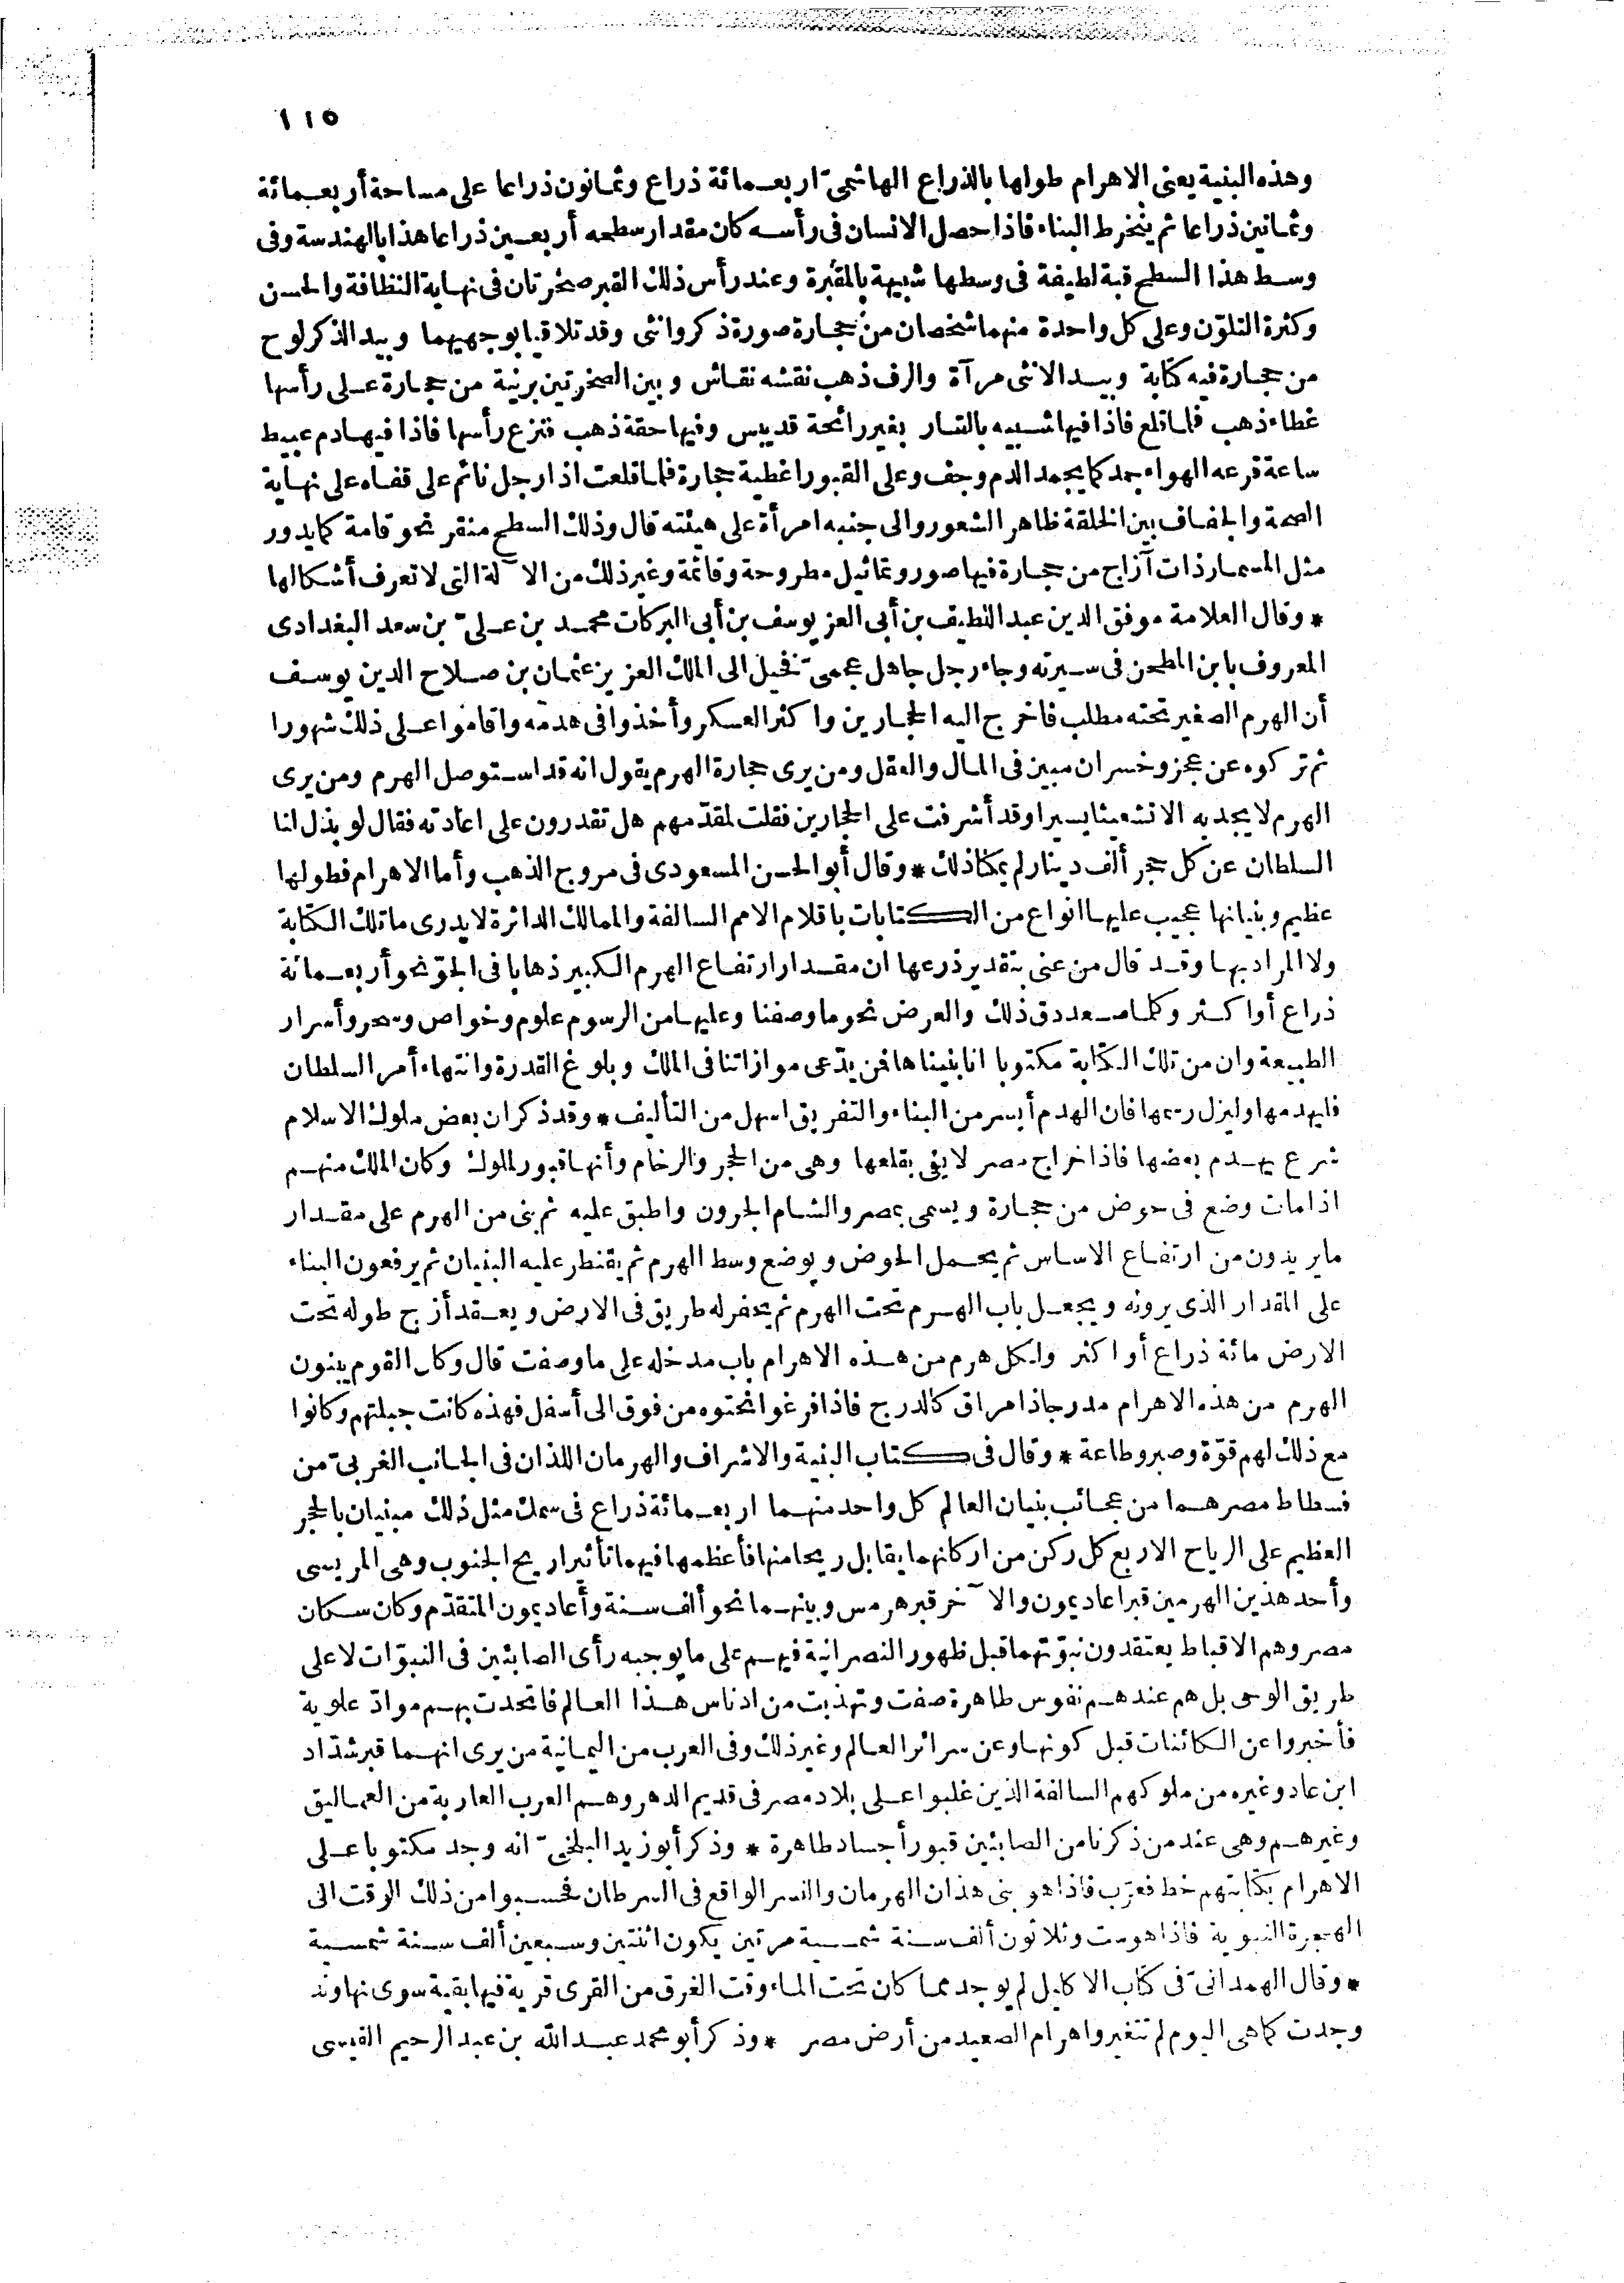 ١١٥
وهذه البنية يعنى الاهرام طولها بالذراع الهاشمىّ اربعمائة ذراع وثمانون ذراعا على مساحة أربعمائة
وثمانين ذراعا ثم ينخرط البناء فاذا حصل الانسان فى رأسه كان مقدار سطحه أربعين ذراعا هذا بالهندسة وفى
وسط هذا السطح قبة لطيفة فى وسطها شبيهة بالمقبرة وعند رأس ذلك القبر صخرتان فى نهاية النظافة والحسن
وكثرة التلوّن وعلى كل واحدة منهما شخصان من حجارة صورة ذكر وانثى وقد تلاقيا بوجهيهما وبيد الذكر لوح
من حجارة فيه كتابة وبيد الانثى مرآة والرف ذهب نقشه نقاش وبين الصخرتين برنية من حجارة على رأسها
غطاء ذهب فلما قلع فاذا فيها شبيه بالقار بغير رائحة قد يبس وفيها حقة ذهب فنزع رأسها فاذا فيها دم عبيط
ساعة قرعه الهواء جمد كما يجمد الدم وجف وعلى القبور اغطية حجارة فلما قلعت اذا رجل نائم على قفاه على نهاية
الصحة والجفاف بين الخلقة ظاهر الشعور والى جنبه امرأة على هيئته قال وذلك السطح منقر نحو قامة كما يدور
مثل المسمار ذات آزاج من حجارة فيها صور وتماثيل مطروحة وقائمة وغير ذلك من الآلة التى لا تعرف أشكالها
* وقال العلامة موفق الدين عبد اللطيف بن أبى العز يوسف بن أبى البركات محمد بن علىّ بن سعد البغدادى
المعروف بابن المطحن فى سيرته وجاء رجل جاهل عجمىّ تخيل الى الملك العزيز عثمان بن صلاح الدين يوسف
أن الهرم الصغير تحته مطلب فاخرج اليه الحجارين واكثر العسكر وأخذوا فى هدمه واقاموا على ذلك شهورا
ثم تركوه عن عجز وخسران مبين فى المال والعقل ومن يرى حجارة الهرم يقول انه قد استوصل الهرم ومن يرى
الهرم لا يجد به الا تشعيثا يسيرا وقد أشرفت على الحجارين فقلت لمقدّمهم هل تقدرون على اعادته فقال لو بذل لنا
السلطان عن كل حجر ألف دينار لم يمكنا ذلك * وقال أبو الحسن المسعودى فى مروج الذهب وأما الاهرام فطولها
عظيم وبنيانها عجيب عليها انواع من الكتابات باقلام الامم السالفة والممالك الداثرة لا يدرى ما تلك الكتابة
ولا المراد بها وقد قال من عنى بتقدير ذرعها ان مقدار ارتفاع الهرم الكبير ذهابا فى الجوّ نحو أربعمائة
ذراع أو اكثر وكلما صعد دق ذلك والعرض نحو ما وصفنا وعليها من الرسوم علوم وخواص وسحر وأسرار
الطبيعة وان من تلك الكتابة مكتوبا انا بنيناها فمن يدّعى موازاتنا فى الملك وبلوغ القدرة وانتهاء أمر السلطان
فليهدمها وليزل رسمها فان الهدم أيسر من البناء والتفريق اسهل من التأليف * وقد ذكر ان بعض ملوك الاسلام
شرع يهدم بعضها فاذا خراج مصر لا يفى بقلعها وهى من الحجر والرخام وأنها قبور لملوك وكان الملك منهم
اذا مات وضع فى حوض من حجارة ويسمى بمصر والشام الجرون واطبق عليه ثم بنى من الهرم على مقدار
ما يريدون من ارتفاع الاساس ثم يحمل الحوض ويوضع وسط الهرم ثم يقنطر عليه البنيان ثم يرفعون البناء
على المقدار الذى يرونه ويجعل باب الهرم تحت الهرم ثم يحفر له طريق فى الارض ويعقد أزج طوله تحت
الارض مائة ذراع أو اكثر ولكل هرم من هذه الاهرام باب مدخله على ما وصفت قال وكان القوم يبنون
الهرم من هذه الاهرام مدرجا ذا مراق كالدرج فاذا فرغوا نحتوه من فوق الى أسفل فهذه كانت حيلتهم وكانوا
مع ذلك لهم قوّة وصبر وطاعة * وقال فى كتاب البنية والاشراف والهرمان اللذان فى الجانب الغربىّ من
فسطاط مصر هما من عجائب بنيان العالم كل واحد منهما اربعمائة ذراع فى سمك مثل ذلك مبنيان بالحجر
العظيم على الرياح الاربع كل ركن من اركانهما يقابل ريحا منها فأعظمها فيهما تأثيرا ريح الجنوب وهى المريسى
وأحد هذين الهرمين قبر اعاديمون والآخر قبر هرمس وبينهما نحو ألف سنة وأعاديمون المتقدّم وكان سكان
مصر وهم الاقباط يعتقدون نبوّتهما قبل ظهور النصرانية فيهم على ما يوجبه رأى الصابئين فى النبوّات لا على
طريق الوحى بل هم عندهم نفوس طاهرة صفت وتهذبت من ادناس هذا العالم فاتحدت بهم موادّ علوية
فأخبروا عن الكائنات قبل كونها وعن سرائر العالم وغير ذلك وفى العرب من اليمانية من يرى انهما قبر شدّاد
ابن عاد وغيره من ملوكهم السالفة الذين غلبوا على بلاد مصر فى قديم الدهر وهم العرب العاربة من العماليق
وغيرهم وهى عند من ذكرنا من الصابئين قبور أجساد طاهرة * وذكر أبو زيد البلخىّ انه وجد مكتوبا على
الاهرام بكتابتهم خط فعرّب فاذا هو بنى هذان الهرمان والنسر الواقع فى السرطان فحسبوا من ذلك الوقت الى
الهجرة النبوية فاذا هو ست وثلاثون ألف سنة شمسية مرتين يكون اثنتين وسبعين ألف سنة شمسية
* وقال الهمدانىّ فى كتاب الاكليل لم يوجد مما كان تحت الماء وقت الغرق من القرى قرية فيها بقية سوى نهاوند
وجدت كما هى اليوم لم تتغير واهرام الصعيد من أرض مصر * وذكر أبو محمد عبد الله بن عبد الرحيم القيسى